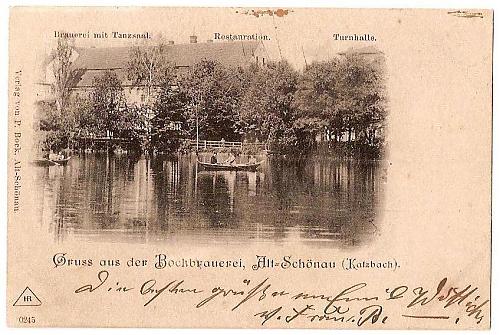 Brauerei mit Tanzsaal. Restauration. Turnhalle.
Verlag von P. Bock, Alt-Schönau
Gruss aus der Bockbrauerei, Alt-Schönau (Katzbach).
Die besten Grüße
HR
0245